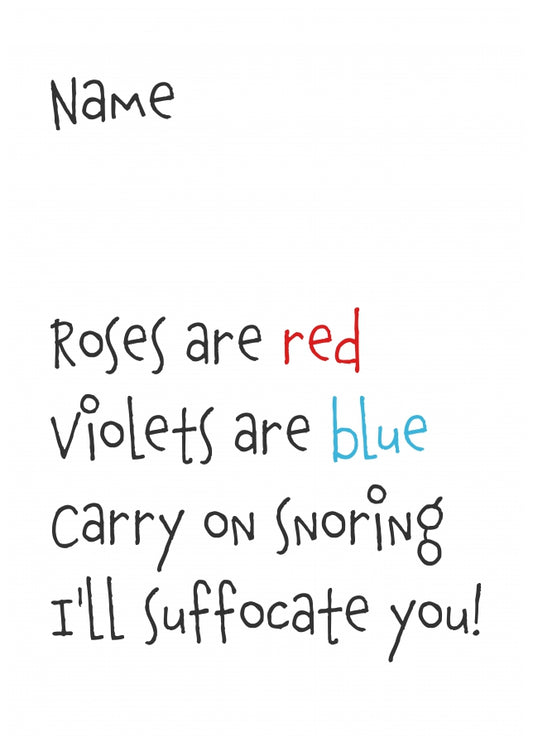 Name
Roses are red
Violets are blue
Carry on snoring
I'll suffocate you!